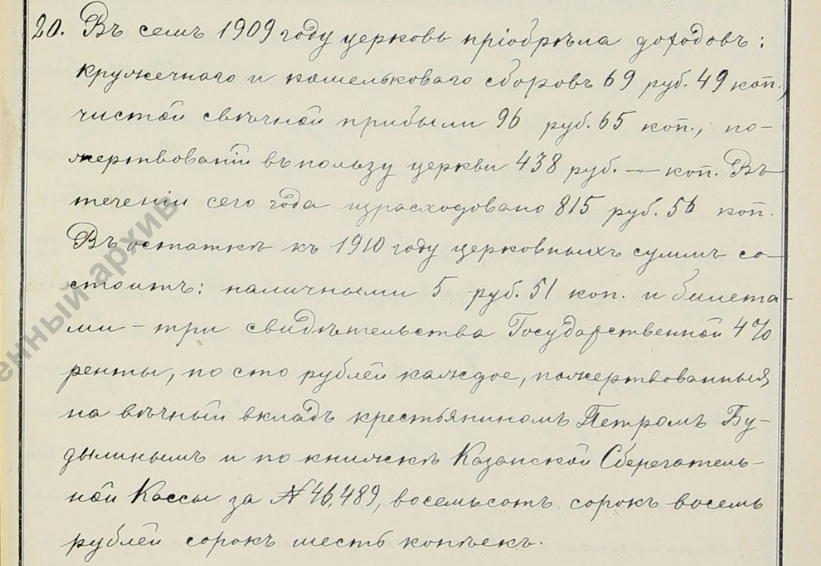 20. Въ семъ 1909 году церковь пріобрѣла доходовъ:
кружечнаго и кошельковаго сборовъ 69 руб. 49 коп.,
чистой свѣчной прибыли 96 руб. 65 коп., по-
жертвованій въ пользу церкви 438 руб. — коп. Въ
теченіи сего года израсходовано 815 руб. 56 коп.
Въ остаткѣ къ 1910 году церковныхъ суммъ со-
стоитъ: наличными 5 руб. 51 коп. и билета-
ми – три свидѣтельства Государственной 4%
ренты, по сто рублей каждое, пожертвованныя
на вѣчный вкладъ крестьяниномъ Петромъ Бу-
дылинымъ и по книжкѣ Казанской Сберегатель-
ной Кассы за № 46,489, восемьсотъ сорокъ восемь
рублей сорокъ шесть копѣекъ.
енный архив